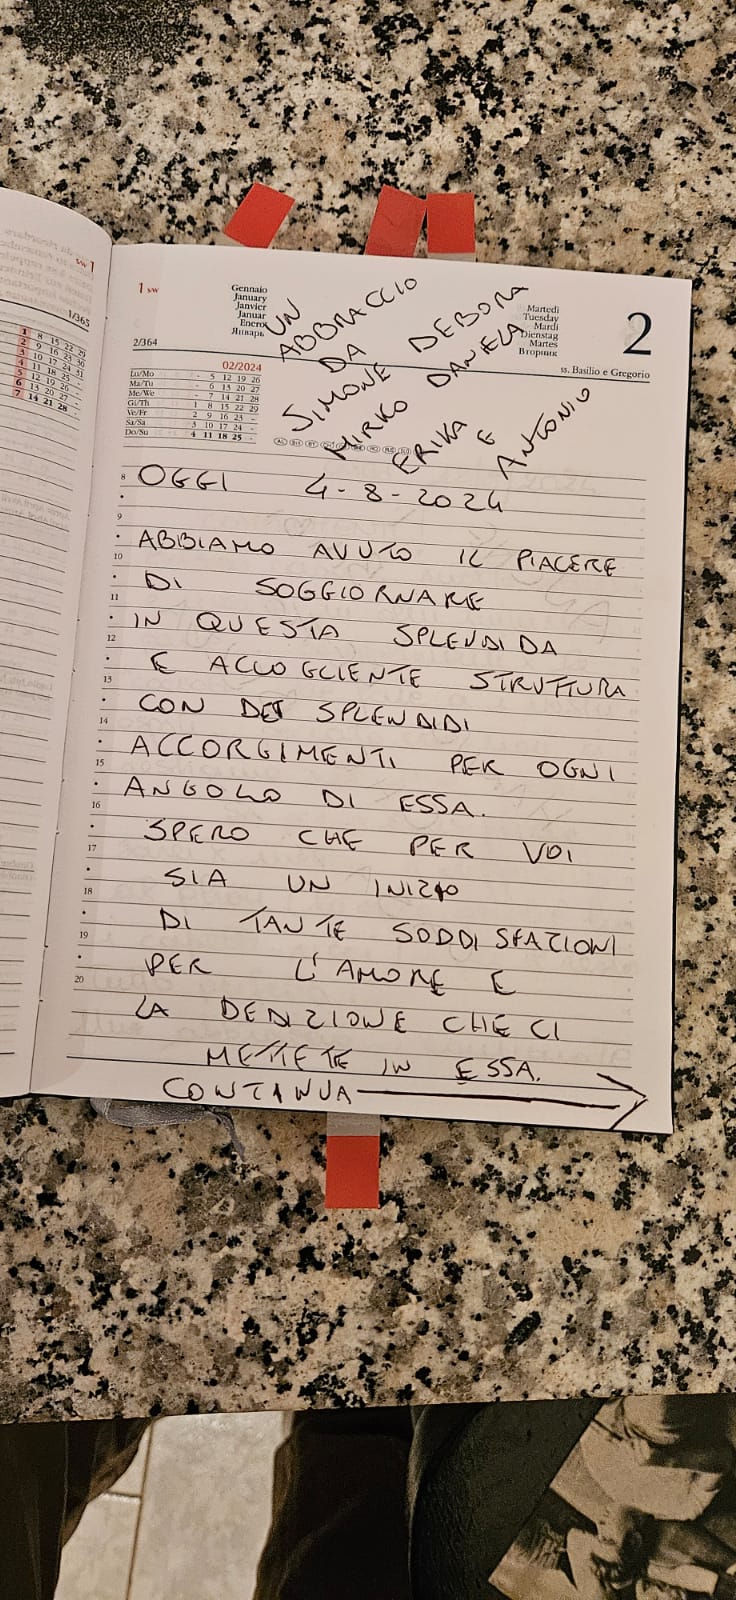 1 SW
Gennaio
January
Janvier
Januar
Enero
Январь
2/364
02/2024
Lu/Mo - 5 12 19 26
Ma/Tu - 6 13 20 27
Me/We - 7 14 21 28
Gi/Th 1 8 15 22 29
Ve/Fr 2 9 16 23 -
Sa/Sa 3 10 17 24 -
Do/Su 4 11 18 25 -
Martedì
Tuesday
Mardi
Dienstag
Martes
Вторник
2
ss. Basilio e Gregorio
UN
ABBRACCIO
DA
SIMONE DEBORA
MIRKO DANIELA
ERIKA E
ANTONIO
8 OGGI 4-8-2024
9
ABBIAMO AVUTO IL PIACERE
10
DI SOGGIORNARE
11
IN QUESTA SPLENDIDA
12
E ACCOGLIENTE STRUTTURA
13
CON DEI SPLENDIDI
14
ACCORGIMENTI PER OGNI
15
ANGOLO DI ESSA.
16
SPERO CHE PER VOI
17
SIA UN INIZIO
18
DI TANTE SODDISFAZIONI
19
PER L'AMORE E
20
LA DEDIZIONE CHE CI
METTETE IN ESSA.
CONTINUA
1 SW
1/365
1 8 15 22 29
2 9 16 23 30
3 10 17 24 31
4 11 18 25 -
5 12 19 26 -
6 13 20 27 -
7 14 21 28 -